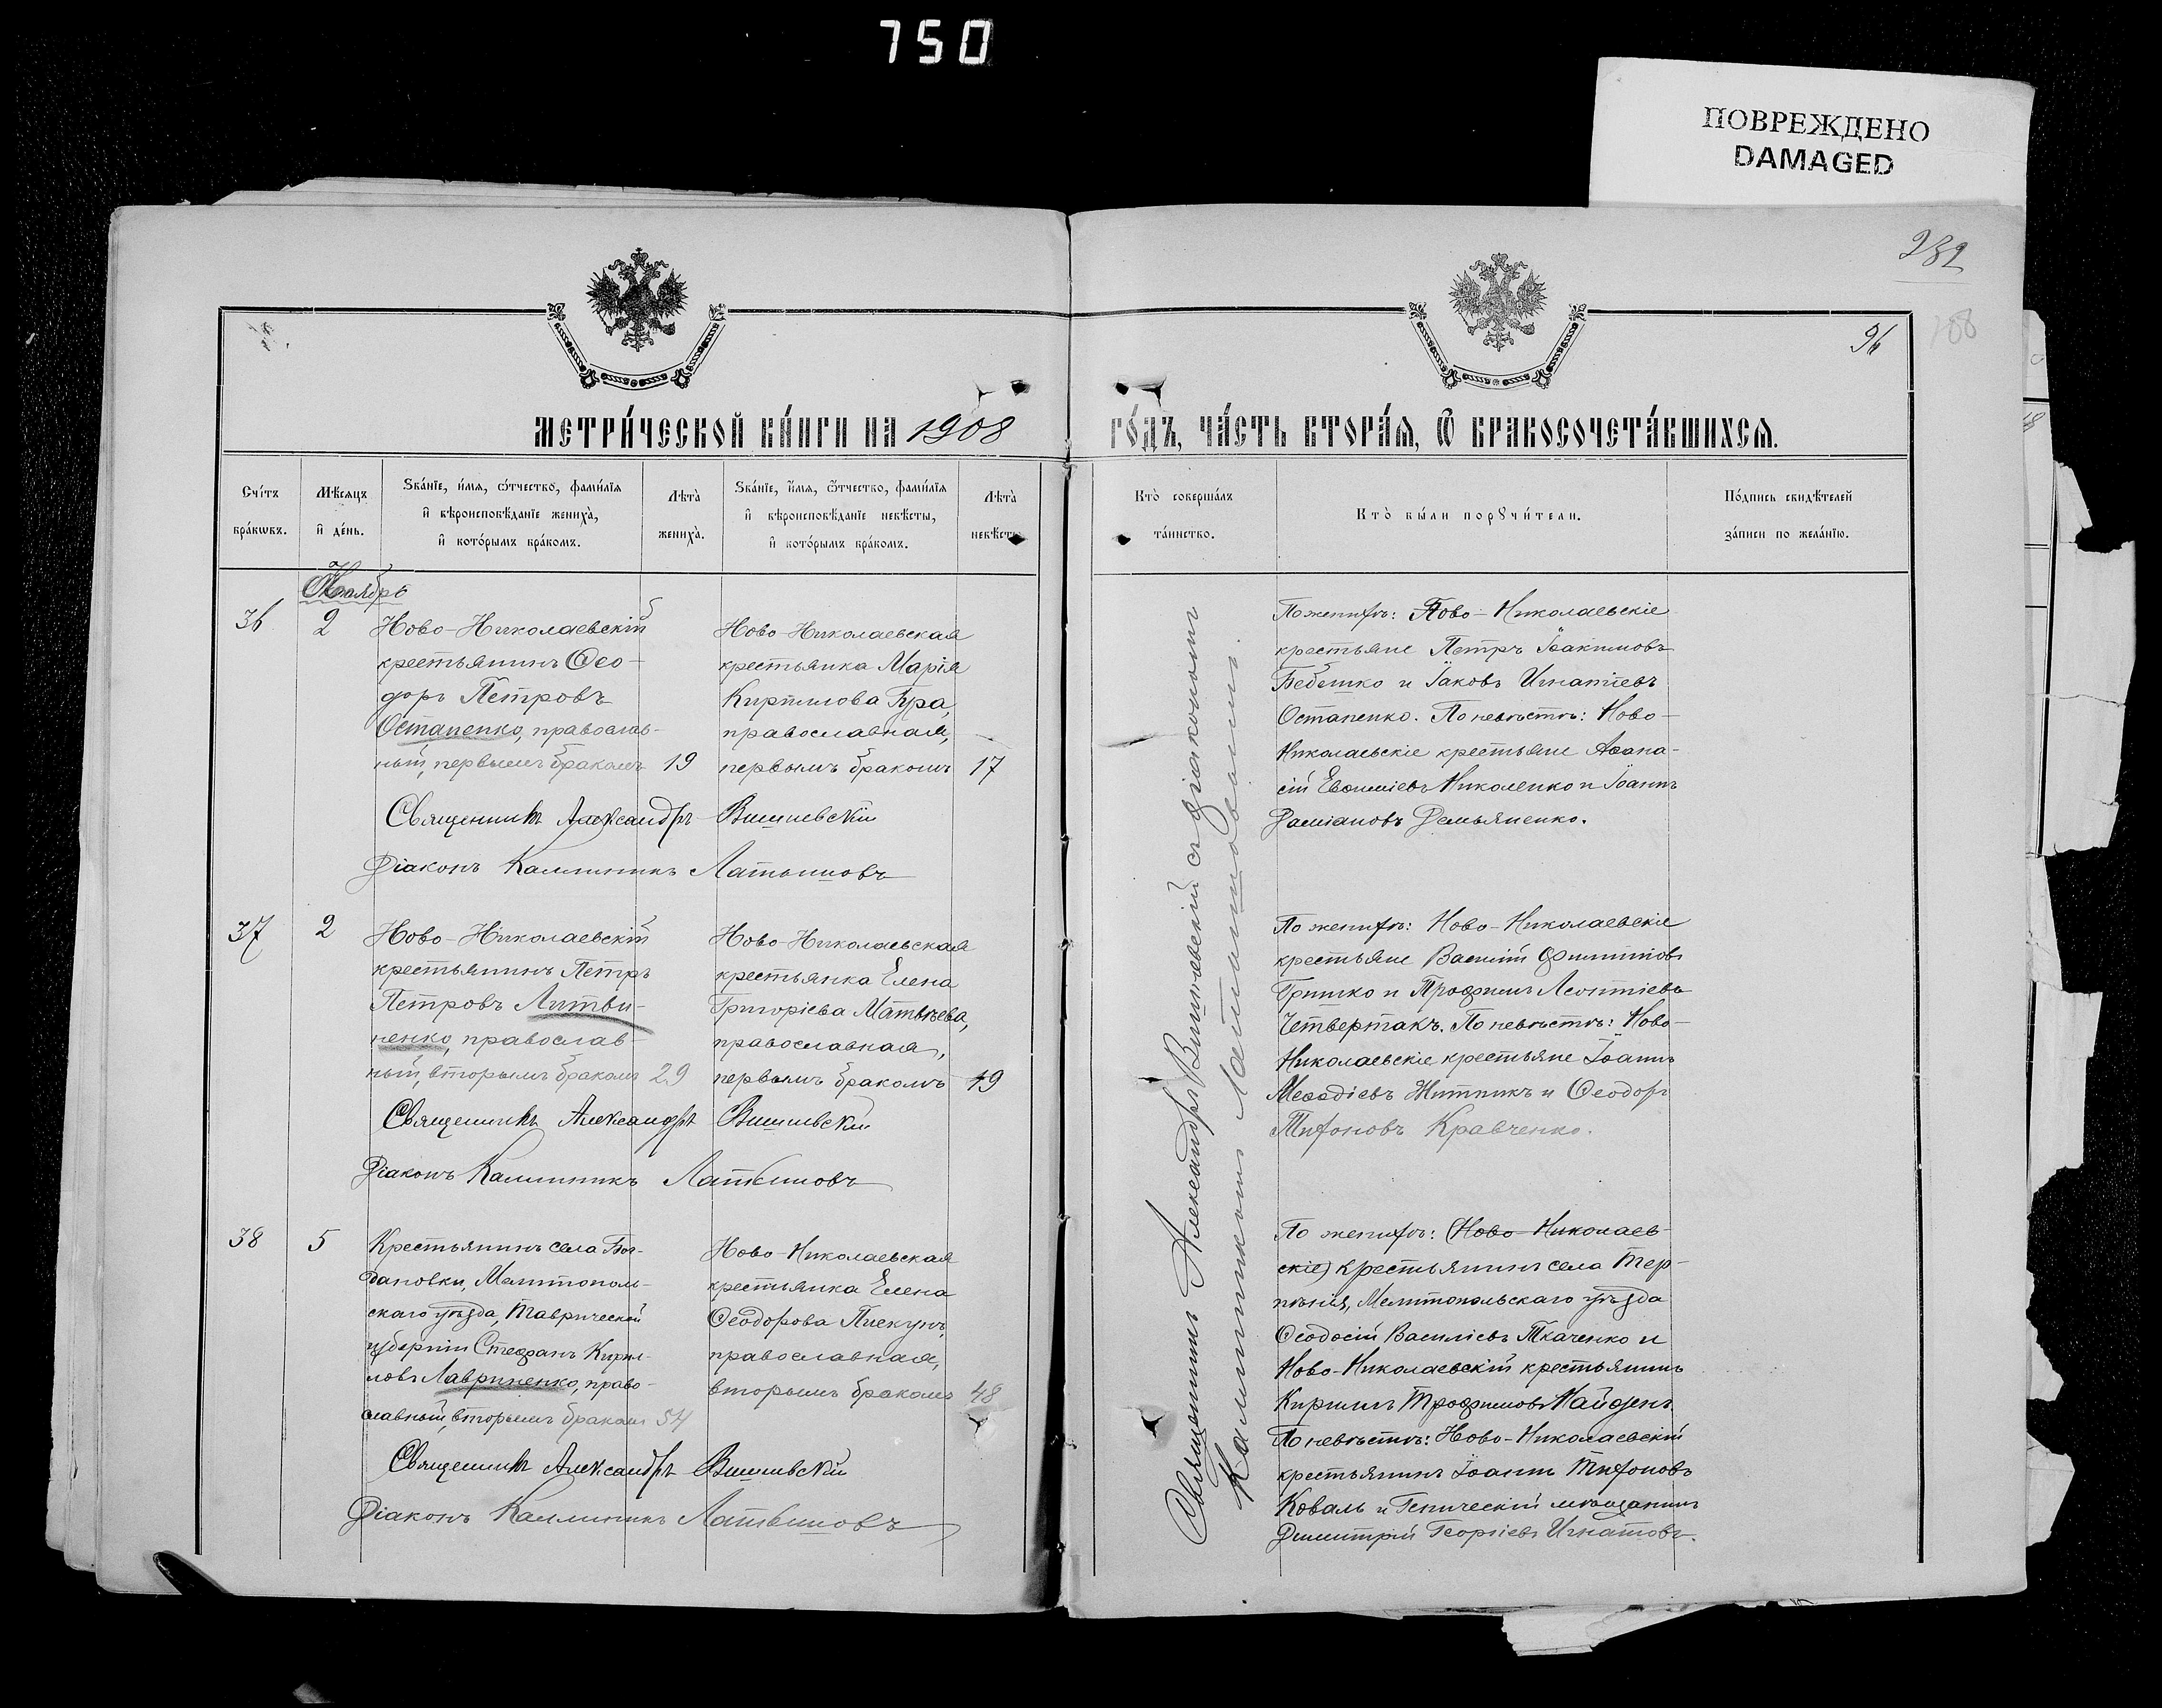 750
ПОВРЕЖДЕНО
DAMAGED
282
96
188
МЕТРИ́ЧЕСКОЙ КНИ́ГИ НА 1908
ГО́ДЪ, ЧА́СТЬ ВТОРА́Я, Ѽ БРАКОСОЧЕТА́ВШИХСЯ.
Сче́тъ
бра́кѡвъ.
Мѣсяцъ
и҆ де́нь.
Ѕва́нїе, и҆́мя, ѻ҆́тчество, фами́лїя
и҆ вѣроисповѣданїе жениха̀,
и҆ кото́рымъ бра́комъ.
Лѣта̀
жениха̀.
Ѕва́нїе, и҆́мя, ѻ҆́тчество, фами́лїя
и҆ вѣроисповѣданїе невѣсты,
и҆ кото́рымъ бра́комъ.
Лѣта̀
невѣсты
Кто̀ соверша́лъ
та́инство.
Кто̀ бы́ли порꙋчи́тели.
По́дпись свидѣтелей
за́писи по жела́нїю.
Ноябрь
36
2
Ново-Николаевскій
крестьянинъ Ѳео-
доръ Петровъ
Остапенко, православ-
ный, первымъ бракомъ
19
Ново-Николаевская
крестьянка Марія
Кириллова Гура,
православная,
первымъ бракомъ
17
Священникъ Александръ Вишневскій
Діаконъ Каллиникъ Латышовъ
По женихѣ: Ново-Николаевскіе
крестьяне Петръ Іоакимовъ
Бебешко и Іаковъ Игнатіевъ
Остапенко. По невѣстѣ: Ново-
Николаевскіе крестьяне Аѳана-
сій Евѳиміевъ Николенко и Іоаннъ
Даміановъ Демьяненко.
37
2
Ново-Николаевскій
крестьянинъ Петръ
Петровъ Литви-
ненко, православ-
ный, вторымъ бракомъ
29
Ново-Николаевская
крестьянка Елена
Григоріева Матвѣева,
православная,
первымъ бракомъ
19
Священникъ Александръ Вишневскій
Діаконъ Каллиникъ Латышовъ
По женихѣ: Ново-Николаевскіе
крестьяне Василій Филипповъ
Гришко и Трофимъ Леонтіевъ
Четвертакъ. По невѣстѣ: Ново-
Николаевскіе крестьяне Іоаннъ
Меѳодіевъ Житникъ и Ѳеодоръ
Тихоновъ Кравченко.
38
5
Крестьянинъ села Бог-
дановки, Мелитополь-
скаго уѣзда, Таврической
губерніи Стефанъ Кирил-
ловъ Лавриненко, право-
славный, вторымъ бракомъ
54
Ново-Николаевская
крестьянка Елена
Ѳеодорова Пискунъ,
православная,
вторымъ бракомъ
48
Священникъ Александръ Вишневскій
Діаконъ Каллиникъ Латышовъ
По женихѣ: (Ново-Николаев-
скіе) крестьянинъ села Тер-
пѣнія, Мелитопольскаго уѣзда
Ѳеодосій Василіевъ Ткаченко и
Ново-Николаевскій крестьянинъ
Кириллъ Трофимовъ Найденъ
По невѣстѣ: Ново-Николаевскій
крестьянинъ Іоаннъ Тихоновъ
Коваль и Геническій мѣщанинъ
Димитрій Георгіевъ Игнатовъ.
Священникъ Александръ Вишневскій съ діакономъ
Каллиникомъ Латышовымъ.